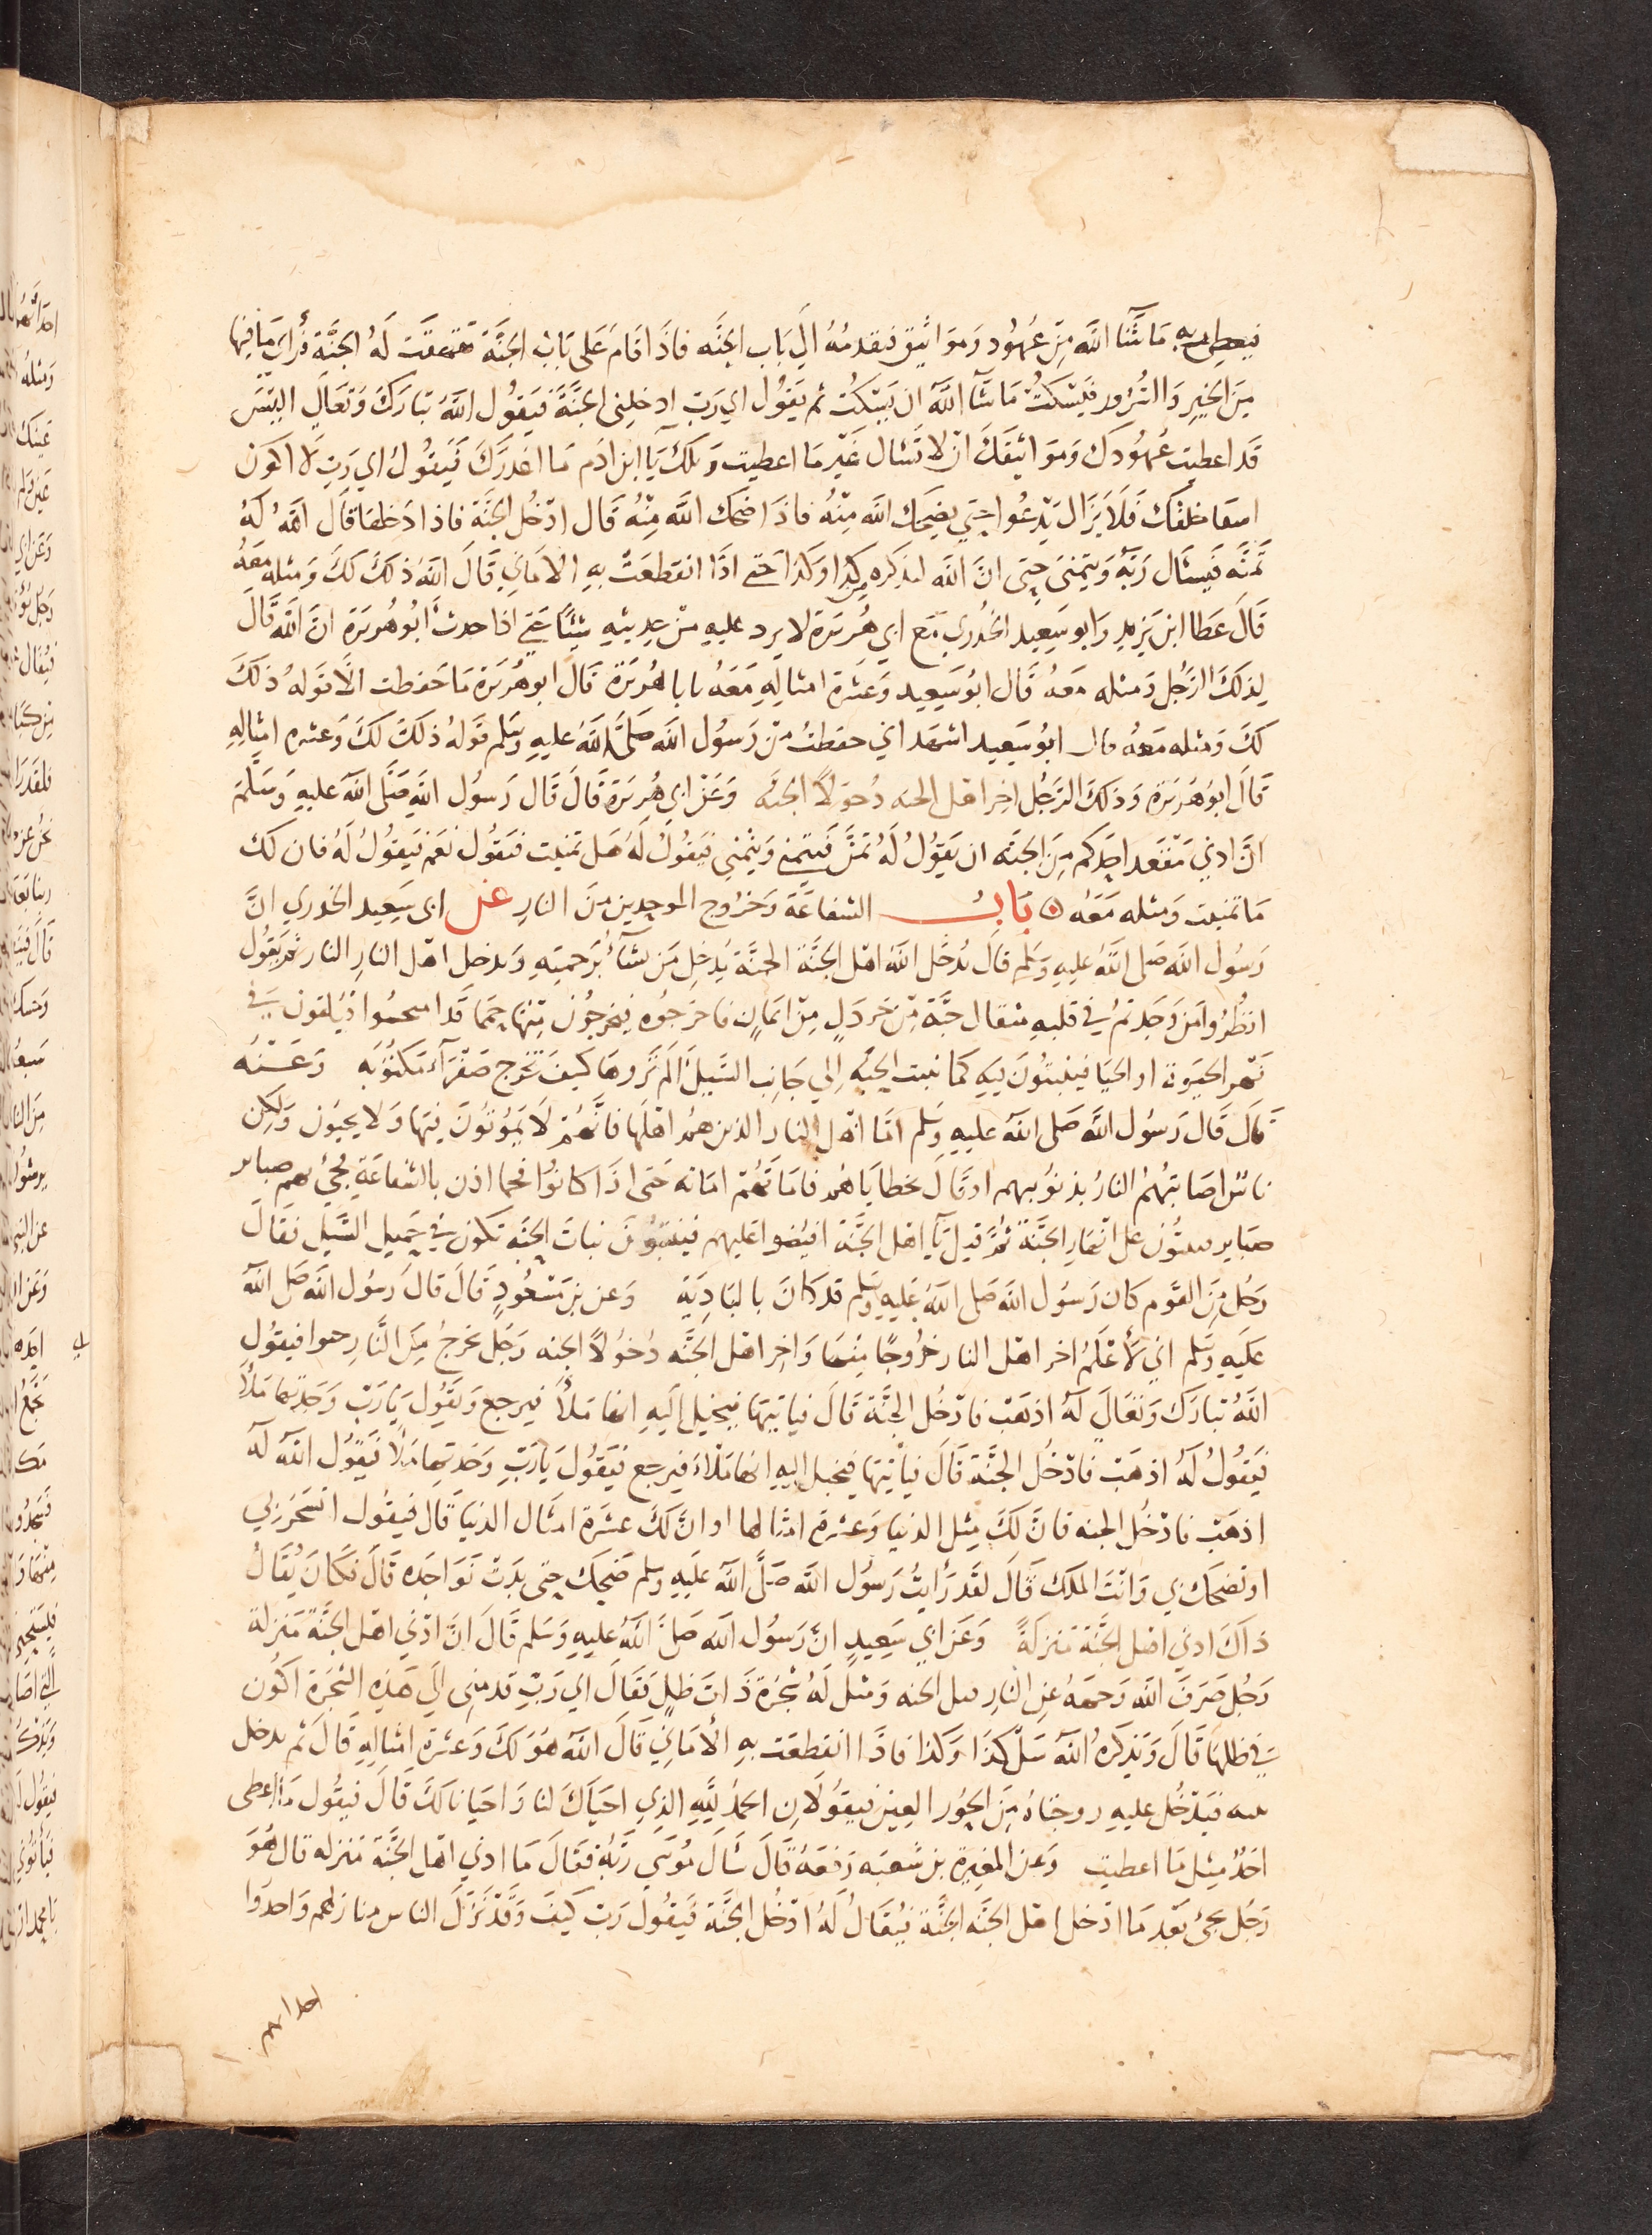 فيعطي ربه ما شا الله من عهود ومواثيق فيقدمه الي باب الجنه فاذا قام على باب الجنة تفهقت له الجنة فراى ما فيها
من الخير والسرور فيسكت ما شآ الله ان يسكت ثم يقول اي رب ادخلني الجنة فيقول الله تبارك وتعالي اليس
قد اعطيت عهودك ومواثيقك ان لا تسال غير ما اعطيت ويلك يا ابن ادم ما اغدرك فيقول اي رب لا اكون
اشقا خلقك فلا يزال يدعوا حتي يضحك الله منه فاذا ضحك الله منه قال ادخل الجنة فاذا دخلها قال الله له
تمنه فيسال ربه ويتمنى حتى ان الله ليذكره من كذا وكذا حتي اذا انقطعت به الاماني قال الله ذلك لك ومثله معه
قال عطا ابن يزيد وابو سعيد الخدري مع ابي هريرة لا يرد عليه من حديثه شيئا حتي اذا حدث ابو هريرة ان الله قال
لذلك الرجل ومثله معه قال ابو سعيد وعشرة امثاله معه يابا هريرة قال ابو هريرة ما حفظت الا قوله ذلك
لك ومثله معه قال ابو سعيد اشهد اني حفظت من رسول الله صلى الله عليه وسلم قوله ذلك لك وعشره امثاله
قال ابو هريرة وذلك الرجل اخر اهل الجنه دخولا الجنه وعن ابي هريرة قال قال رسول الله صلى الله عليه وسلم
ان ادني مقعد احدكم من الجنه ان يقول له تمن فيتمني ويتمني فيقول له هل تمنيت فيقول نعم فيقول له فان لك
ما تمنيت ومثله معه باب الشفاعة وخروج الموحدين من النار عن ابي سعيد الخدري ان
رسول الله صلى الله عليه وسلم قال يدخل الله اهل الجنة الجنة يدخل من يشآ برحمته ويدخل اهل النار النار ثم يقول
انظروا من وجدتم في قلبه مثقال حبة من خردل من ايمان فاخرجوه فيخرجون منها حمما قد امتحشوا فيلقون في
نهر الحيوة او الحيا فينبتون فيه كما تنبت الحبه الي جانب السيل الم تروها كيف تخرج صفرآ ملتويه وعنه
قال قال رسول الله صلى الله عليه وسلم اما اهل النار الذين هم اهلها فانهم لا يموتون فيها ولا يحيون ولكن
ناس اصابتهم النار بذنوبهم او قال بخطاياهم فاماتهم اماته حتى اذا كانوا فحما اذن بالشفاعة فجئ بهم ضباير
ضباير فبثوا على انهار الجنة ثم قيل يا اهل الجنة افيضوا عليهم فينبتون نبات الحبة تكون في حميل السيل فقال
رجل من القوم كان رسول الله صلى الله عليه وسلم قد كان بالبادية وعن بن مسعود قال قال رسول الله صلى الله
عليه وسلم اني لأعلم اخر اهل النار خروجا منها واخر اهل الجنه دخولا الجنه رجل يخرج من النار حبوا فيقول
الله تبارك وتعالي له اذهب فادخل الجنة قال فياتيها فيخيل اليه انها ملأ فيرجع ويقول يا رب وجدتها ملأ
فيقول له اذهب فادخل الجنة قال فيأتيها فيخيل اليه انها ملاء فيرجع فيقول يا رب وجدتها ملأ فيقول الله له
اذهب فادخل الجنه فان لك مثل الدنيا وعشرة امثالها او ان لك عشرة امثال الدنيا قال فيقول اتسخر بي
او تضحك بي وانت الملك قال لقد رأيت رسول الله صلى الله عليه وسلم ضحك حتي بدت نواجده قال فكان يقال
ذاك ادني اهل الجنة منزلة وعن ابي سعيد ان رسول الله صلى الله عليه وسلم قال ان ادني اهل الجنة منزلة
رجل صرف الله وجهه عن النار قبل الجنه ومثل له شجرة ذات ظل فقال اي رب قدمني الي هذه الشجرة اكون
في ظلها قال ويذكره الله سل كذا وكذا فاذا انقطعت به الأماني قال الله هو لك وعشرة امثاله قال ثم يدخل
بيته فتدخل عليه زوجتاه من الحور العين فيقولان الحمد لله الذي احياك لنا واحيانا لك قال فيقول ما اعطى
احد مثل ما اعطيت وعن المغيرة بن شعبه رفعه قال سأل موسى ربه فقال ما ادني اهل الجنة منزله قال هو
رجل يجئ بعد ما ادخل اهل الجنه الجنة فيقال له ادخل الجنة فيقول رب كيف وقد نزل الناس منازلهم واخدوا